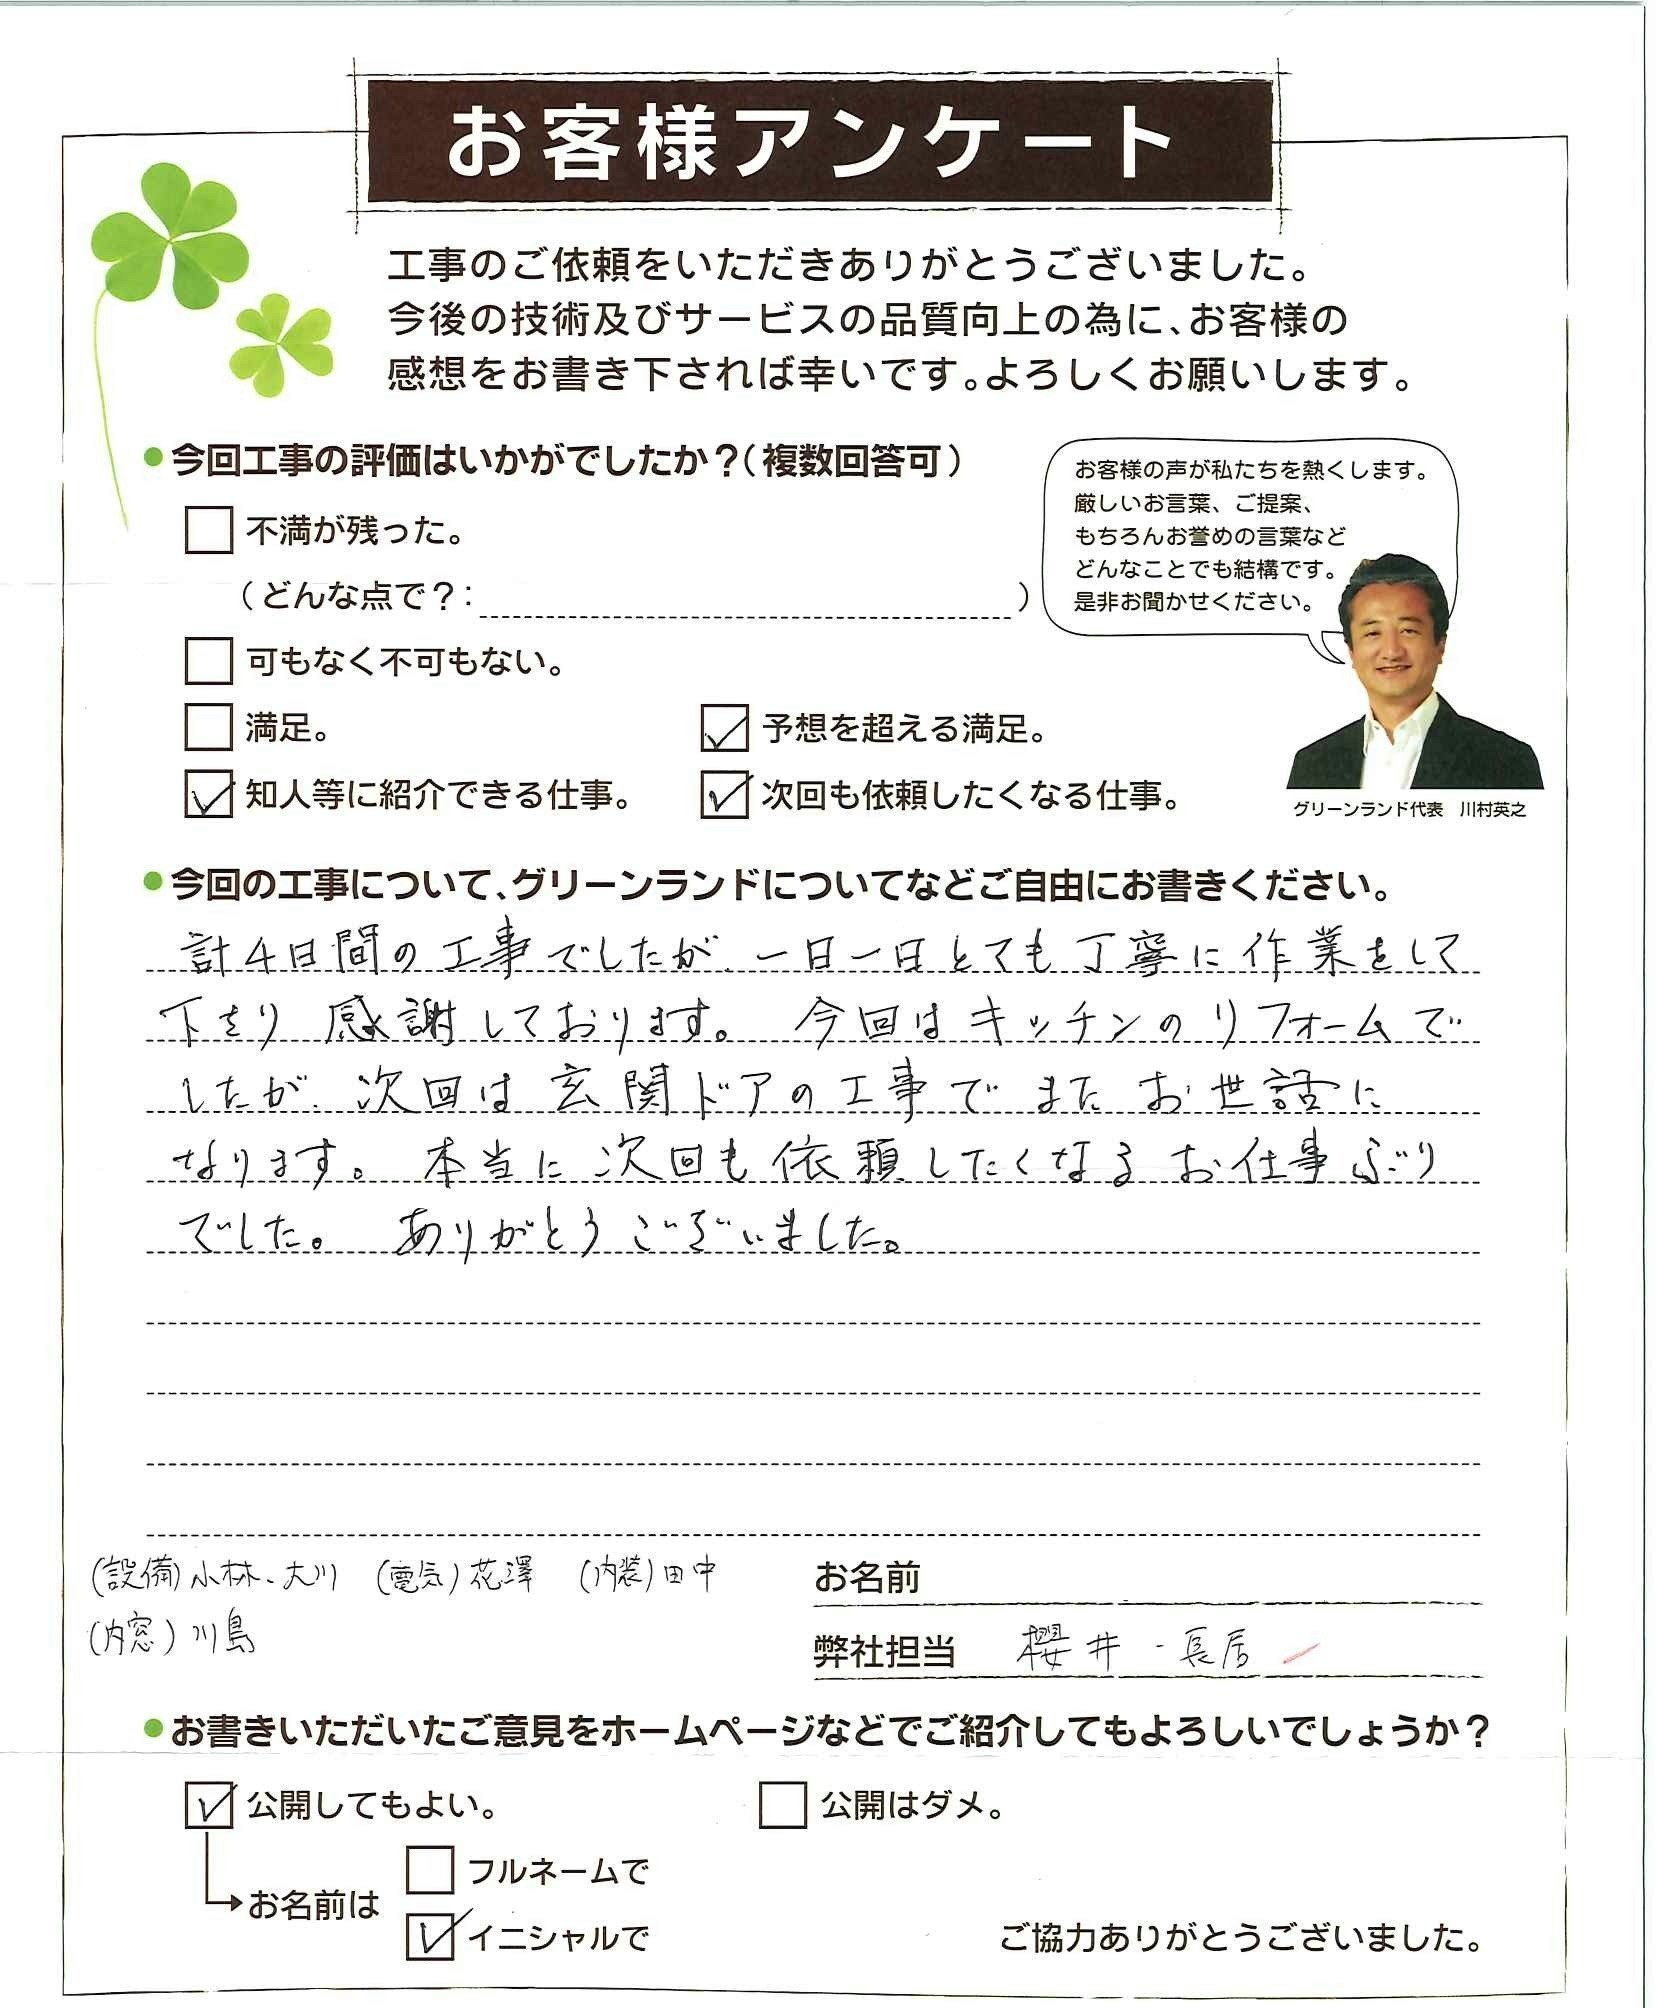 お客様アンケート
工事のご依頼をいただきありがとうございました。
今後の技術及びサービスの品質向上の為に、お客様の
感想をお書き下されば幸いです。よろしくお願いします。
●今回工事の評価はいかがでしたか？（複数回答可）
不満が残った。
（どんな点で？： ）
可もなく不可もない。
満足。
予想を超える満足。
知人等に紹介できる仕事。
次回も依頼したくなる仕事。
お客様の声が私たちを熱くします。
厳しいお言葉、ご提案、
もちろんお誉めの言葉など
どんなことでも結構です。
是非お聞かせください。
グリーンランド代表 川村英之
●今回の工事について、グリーンランドについてなどご自由にお書きください。
計4日間の工事でしたが、一日一日とても丁寧に作業をして
下さり 感謝しております。 今回はキッチンのリフォームで
したが、次回は玄関ドアの工事でまたお世話に
なります。本当に次回も依頼したくなるお仕事ぶり
でした。 ありがとうございました。
(設備)小林、大川 (電気)花澤 (内装)田中
(内窓)川島
お名前
弊社担当 櫻井・長居
●お書きいただいたご意見をホームページなどでご紹介してもよろしいでしょうか？
公開してもよい。
公開はダメ。
お名前は
フルネームで
イニシャルで
ご協力ありがとうございました。